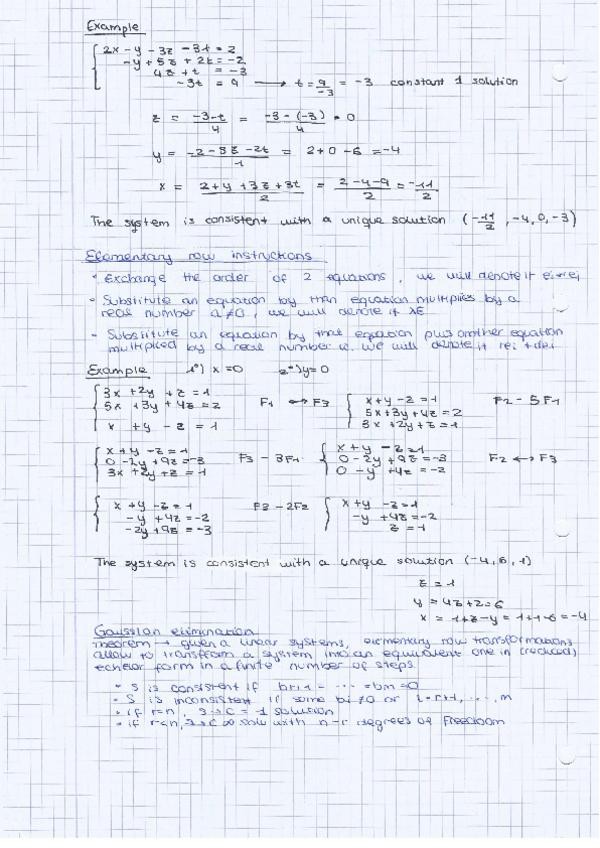 Example
2x - y - 3z - 3t = 2
-y + 5z + 2t = -2
4z + t = -3
-3t = 9 → t = 9/-3 = -3 constant 1 solution
z = -3-t/4 = -3-(-3)/4 = 0
y = -2-5z-2t/-1 = 2+0-6 = -4
x = 2+y+3z+3t/2 = 2-4-9/2 = -11/2
The system is consistent with a unique solution (-11/2, -4, 0, -3)
Elementary row instructions
- Exchange the order of 2 equations, we will denote it
- Substitute an equation by than equation multiplies by a
real number a≠0, we will denote it λE
- Substitute an equation by that equation plus another equation
multiplied by a real number. we will denote it
Example 1º) x=0 2º) y=0
3x + 2y + z = 1
5x + 3y + 4z = 2
x + y - z = 1
F1 ↔ F3
x + y - z = 1
5x + 3y + 4z = 2
3x + 2y + z = 1
F2 - 5F1
x + y - z = 1
0 - 2y + 9z = -3
3x + 2y + z = 1
F3 - 3F1
x + y - z = 1
0 - 2y + 9z = -3
0 - y + 4z = -2
F2 ↔ F3
x + y - z = 1
-y + 4z = -2
-2y + 9z = -3
F3 - 2F2
x + y - z = 1
-y + 4z = -2
z = 1
The system is consistent with a unique solution (-4, 6, 1)
z = 1
y = 4z + 2 = 6
x = 1+z-y = 1+1-6 = -4
Gaussian elimination
Theorem → given a linear systems, elementary row transformations
allow to transfrom a system into an equivalent one in (reduced)
echelon form in a finite number of steps.
- S is consistent if br+1 = ... = bm = 0
- S is inconsistent if some bi ≠ 0 or i = r+1, ..., m
- if r=n, = 1 solution
- if r<n, ∞ solu with n-r degrees of freedom